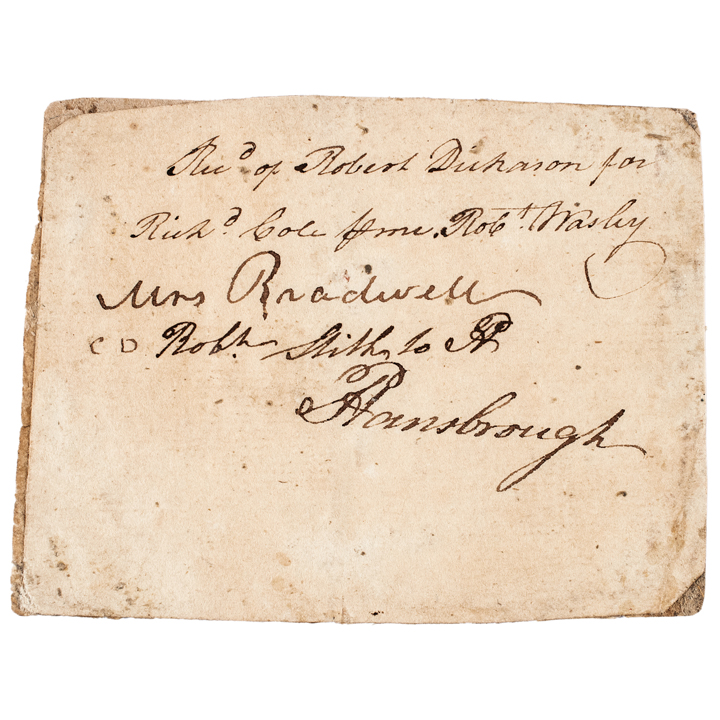 Rec^d of Robert Dickason for
Rich^d Cole Rob^t. Wasley
Mrs Bradwell
Rob^t. Stith to H
Hansbrough